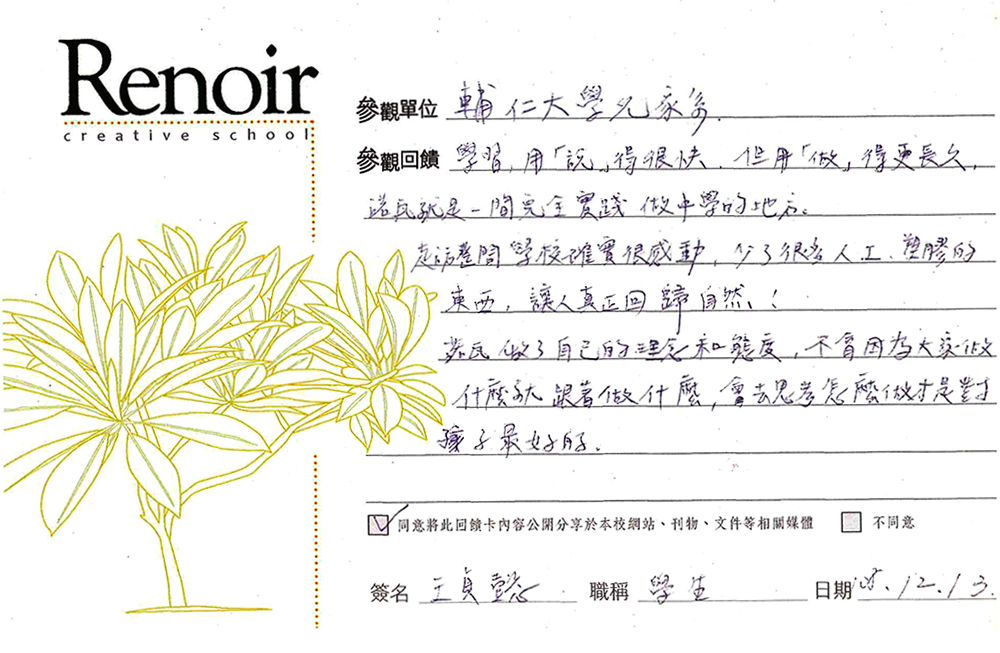 Renoir
creative school
參觀單位 輔仁大學兒家系.
參觀回饋 學習,用「說」得很快.但用「做」得更長久,
諾瓦就是一間完全實踐做中學的地方。
走訪整間學校確實很感動,少了很多人工、塑膠的
東西,讓人真正回歸自然!
諾瓦做了自己的理念和態度,不會因為大家做
什麼就跟著做什麼,會去思考怎麼做才是對
孩子最好的.
同意將此回饋卡內容公開分享於本校網站、刊物、文件等相關媒體 不同意
簽名 王貞懿 職稱 學生 日期 .12.13.